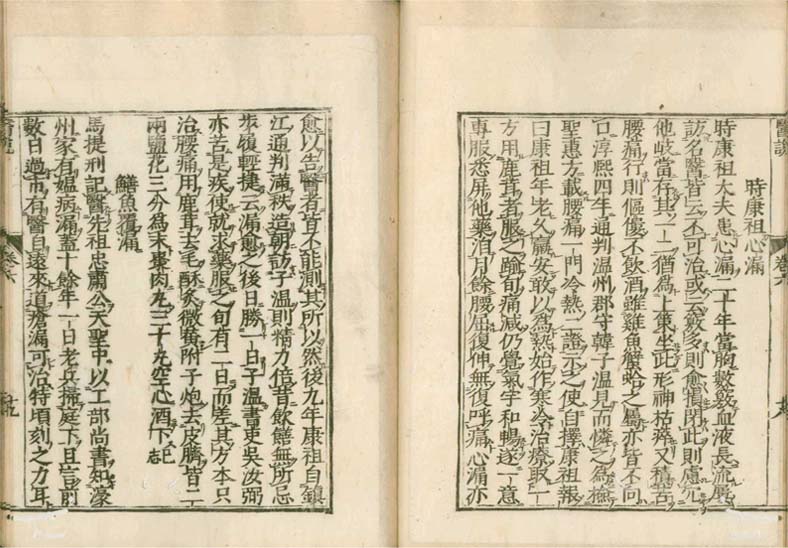 醫說
卷六
時康祖心漏
時康祖大夫患心漏二十年當胸數竅血液長流屢
訪名醫皆云不可治或云竅多則愈損閉此則慮穴
他岐當存其一二猶為上策坐此形神枯瘁又積苦
腰痛行則傴僂不飲酒雖雞魚蟹蛤之屬亦皆不向
口淳熙四年通判溫州郡守韓子溫見而憐之為檢
聖惠方載腰痛一門冷熱二證示之使自擇康祖報
曰康祖年老久羸安敢以為熱始作寒冷治療取一
方用鹿茸者服之踰旬痛減仍覺氣宇和暢遂一意
專服悉屏他藥洎月餘腰屈復伸無復呼痛心漏亦
愈以告醫者皆不能測其所以然後九年康祖自鎮
江通判滿秩造朝訪子溫則精力倍昔飲饍無所忌
步履輕捷云漏愈之後日勝一日子溫書吏吳汝弼
亦苦是疾使就求藥服之旬有二日而差其方本只
治腰痛用鹿茸去毛酥炙微黃附子炮去皮臍皆二
兩鹽花三分為末棗肉丸三十丸空心酒下 已志
鱔魚覆漏
馬提刑記醫先祖忠肅公天聖中以工部尚書知濠
州家有媼病漏蓋十餘年一日老兵掃庭下且言前
數日過市有醫自遠來道瘡漏可治特頃刻之力耳
醫說
卷六
十九